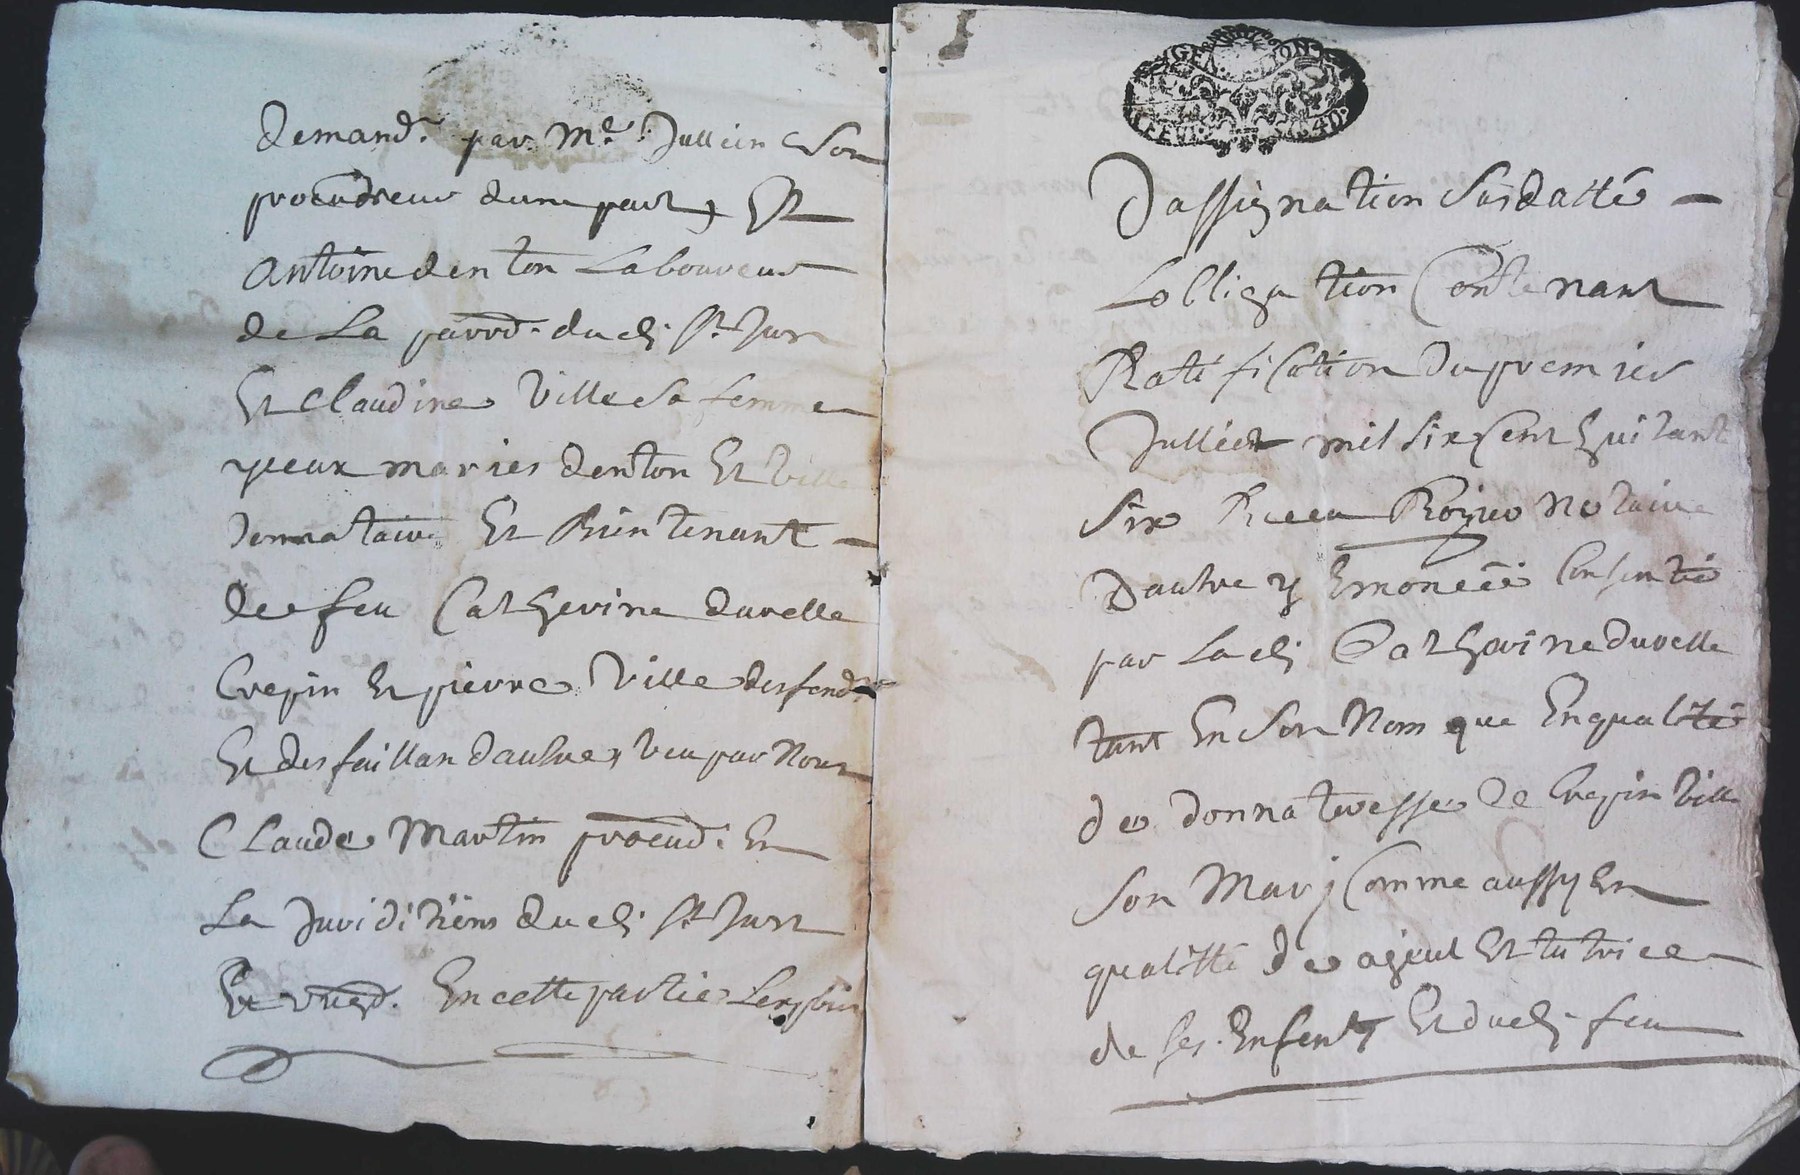 demandr. par Me. Jullien son
procureur dune part, Et
Antoine denton Laboureur
de La parroi. du dt. St. Jure
Et Claudine Ville sa femme
yceux maries denton Et Ville
donnataire Et Bientenant
de feu Catherine duvelle
Crepin Et pierre Ville desfendr.
Et desfaillan daultre, Veu par Nous
Claude Martin procud. En
La Juriditiöns du dt. St. Jure
En cette partie Lexploit
GEN. LYON
Dassignation Susdatté
Lobligation Contenant
Ratification du premier
Jullect mil six cent huitant
six Receu Notaire
Daultre y Enoncéé Consentie
par La dt. Catherine duvelle
tant En Son Nom que En qualité
de donnateresse de Crepin Ville
son Mary Comme aussy En
qualitté de ageul Et tutrice
de ses Enfents Et du dt. feu